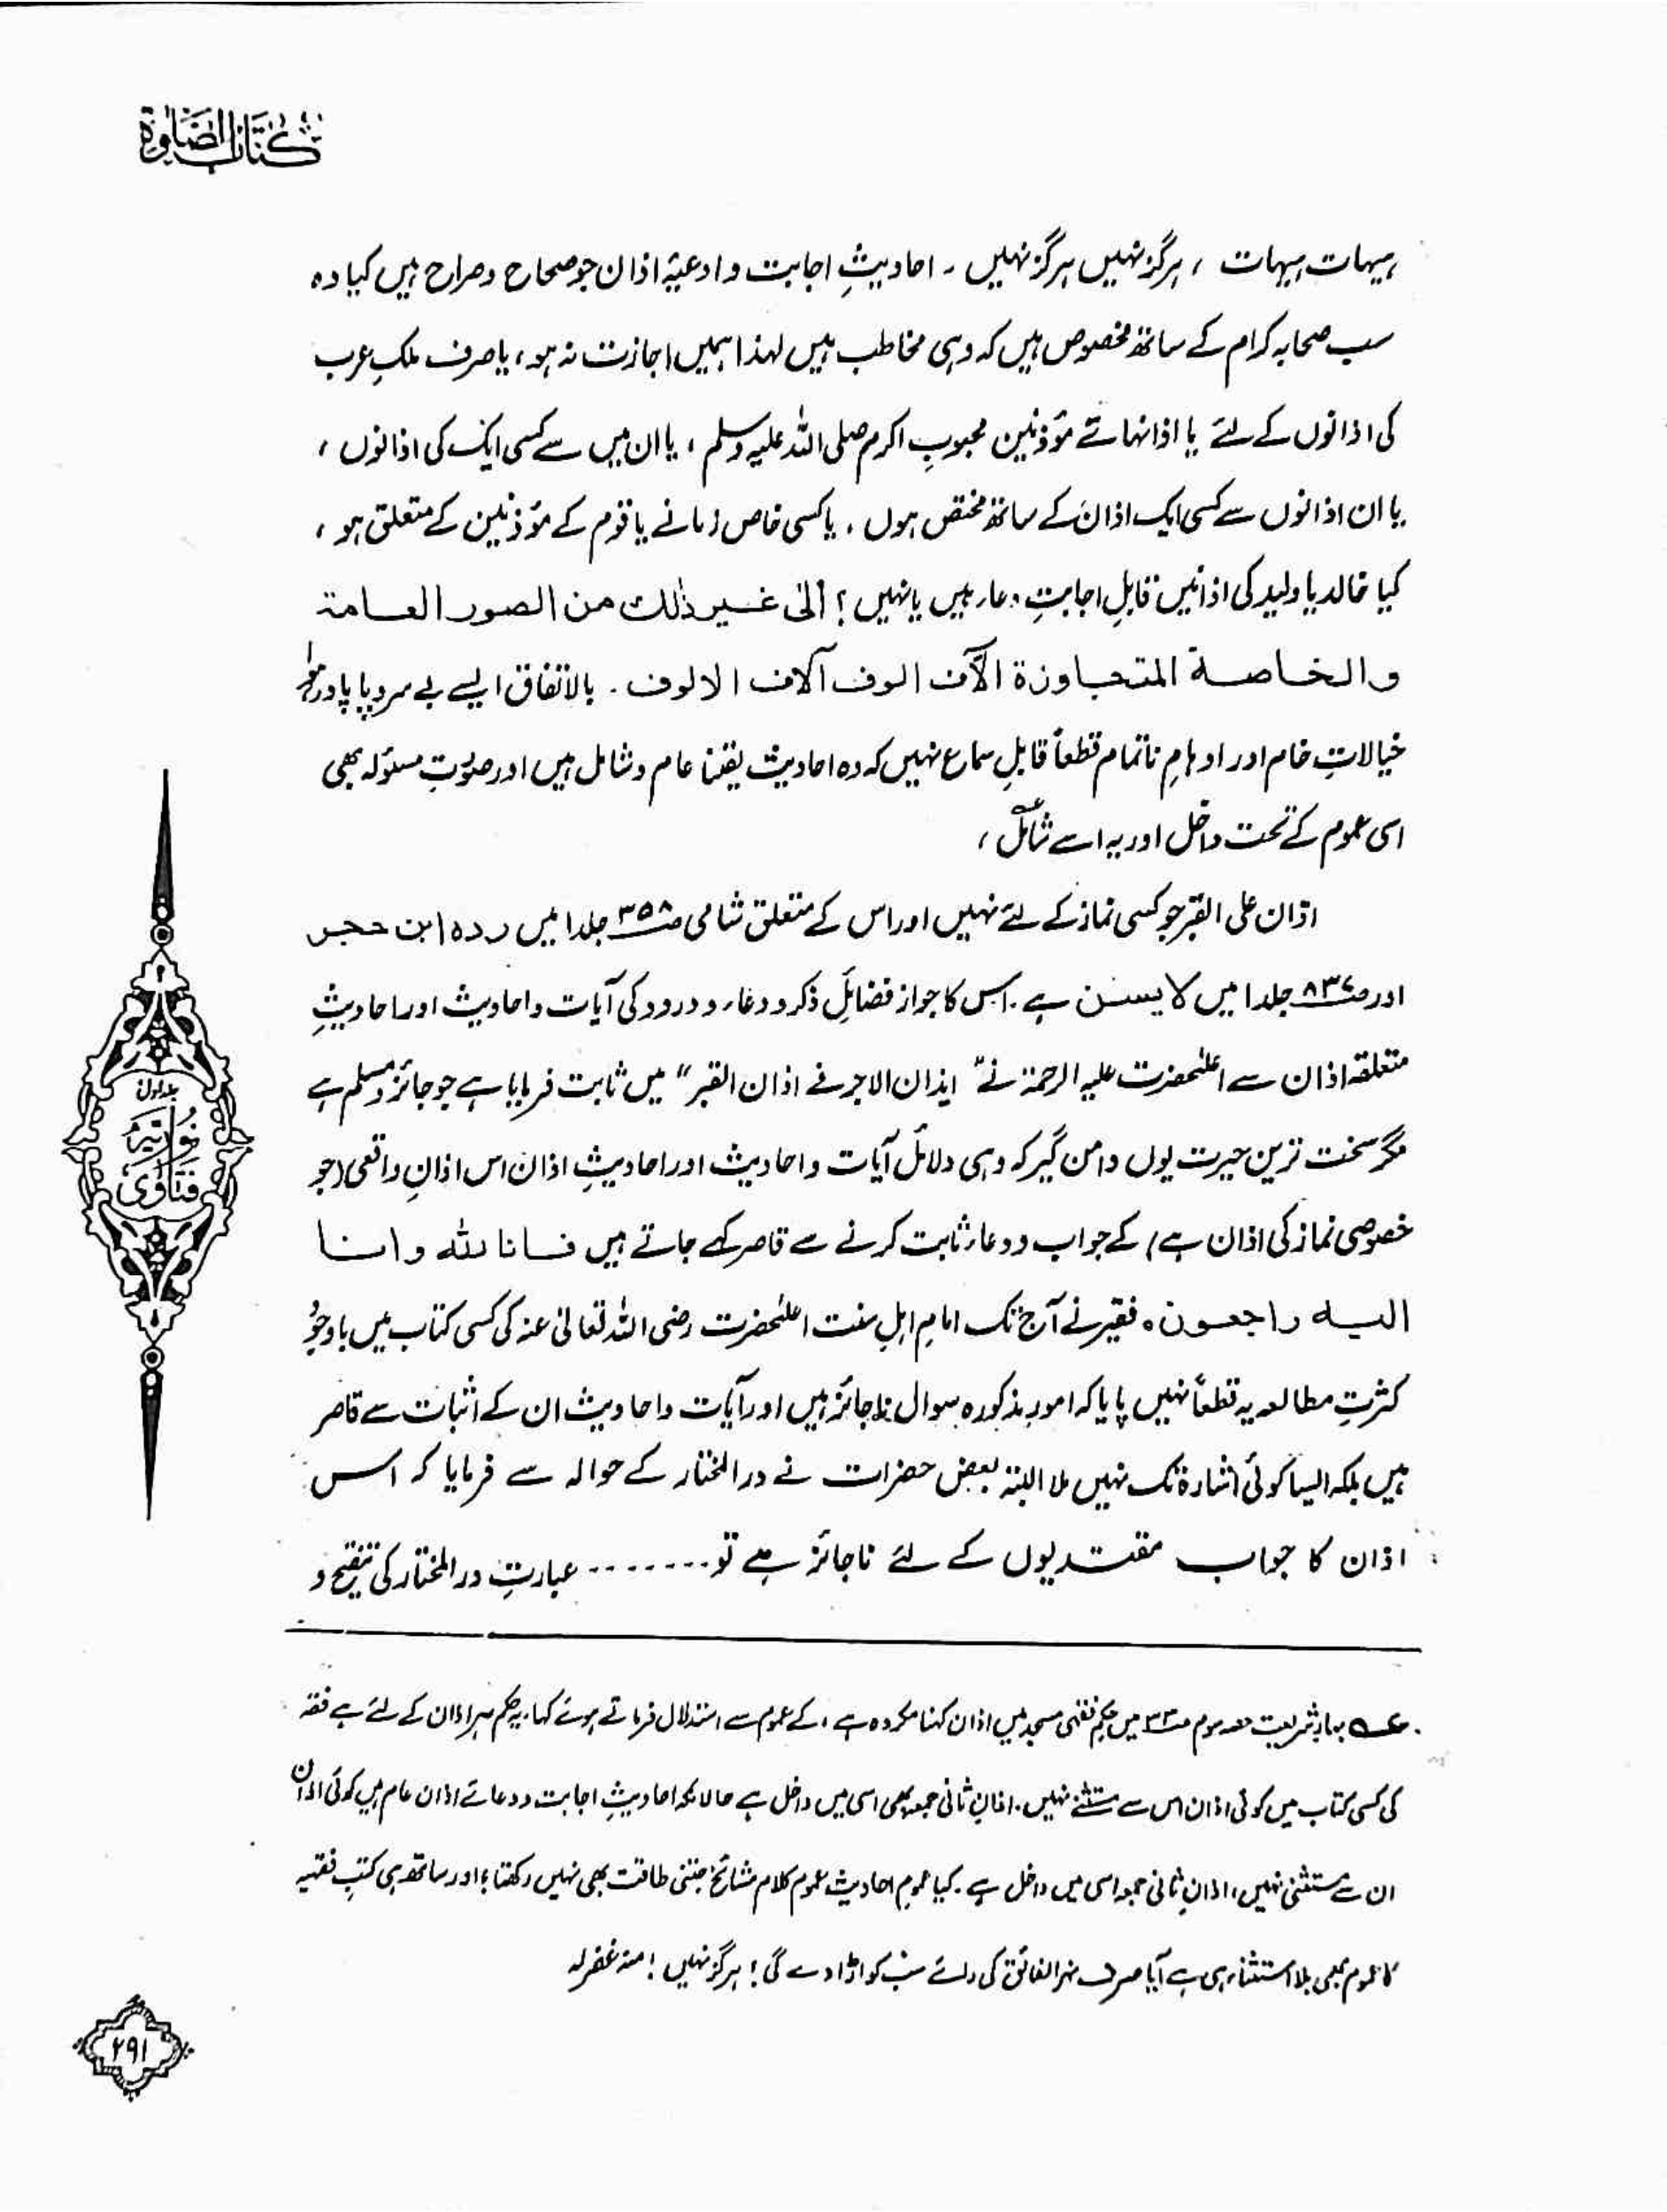 کتاب الصلوٰۃ
ہیہات ہیہات ، ہرگز نہیں ہرگز نہیں ۔ احادیثِ اجابت و ادعیۂ اذان جو صحاح و صراح ہیں کیا وہ
سب صحابہ کرام کے ساتھ مخصوص ہیں کہ وہی مخاطب ہیں لہذا ہمیں اجازت نہ ہو ، یا صرف ملکِ عرب
کی اذانوں کے لئے یا اذانہائے مؤذنین محبوبِ اکرم صلی اللہ علیہ وسلم ، یا ان میں سے کسی ایک کی اذانوں ،
یا ان اذانوں سے کسی ایک اذان کے ساتھ مختص ہوں ، یا کسی خاص زمانے یا قوم کے مؤذنین کے متعلق ہو ،
کیا خالد یا ولید کی اذانیں قابلِ اجابتِ دعا ہیں یا نہیں ؟ الیٰ غیر ذٰلک من الصور العامۃ
والخاصۃ المتجاوزۃ الآف الوف آلاف الالوف ۔ بالاتفاق ایسے بے سروپا پا درہوا
خیالاتِ خام اور اوہامِ ناتمام قطعاً قابلِ سماع نہیں کہ وہ احادیث یقینا عام و شامل ہیں اور صورتِ مسئولہ بھی
اسی عموم کے تحت داخل اور یہ اسے شامل عہ ،
اذان علی القبر جو کسی نماز کے لئے نہیں اور اس کے متعلق شامی ص۳۵۸ جلد ۱ میں ردہ ابن حجر
اور ص۸۳۷ جلد ۱ میں لا یسن ہے ۔ اس کا جواز فضائلِ ذکر و دعاء و درود کی آیات و احادیث اور احادیثِ
متعلقہ اذان سے اعلیٰحضرت علیہ الرحمۃ نے ” ایذان الاجر فے اذان القبر “ میں ثابت فرمایا ہے جو جائز و مسلم ہے
مگر سخت ترین حیرت یوں دامن گیر کہ وہی دلائل آیات و احادیث اور احادیثِ اذان اس اذانِ واقعی (جو
خصوصی نماز کی اذان ہے) کے جواب و دعاء ثابت کرنے سے قاصر کہے جاتے ہیں فانا للہ وانا
الیہ راجعون ہ فقیر نے آج تک امامِ اہلِ سنت اعلیٰحضرت رضی اللہ تعالیٰ عنہ کی کسی کتاب میں باوجود
کثرتِ مطالعہ یہ قطعاً نہیں پایا کہ امورِ مذکورہ سوال ناجائز ہیں اور آیات و احادیث ان کے اثبات سے قاصر
ہیں بلکہ ایسا کوئی اشارۃ تک نہیں ملا البتہ بعض حضرات نے درالمختار کے حوالہ سے فرمایا کہ اس
اذان کا جواب مقتدیوں کے لئے ناجائز ہے تو - - - - - - - - عبارتِ درالمختار کی تنقیح و
عہ بہارِ شریعت حصہ سوم ص۳۳ میں حکمِ فقہی مسجد میں اذان کہنا مکروہ ہے ، کے عموم سے استدلال فرماتے ہوئے کہا ، یہ حکم ہر اذان کے لئے ہے فقہ
کی کسی کتاب میں کوئی اذان اس سے مستثنے نہیں ۔ اذانِ ثانی جمعہ بھی اسی میں داخل ہے حالانکہ احادیثِ اجابت و دعائے اذان عام ہیں کوئی اذان
ان سے مستثنیٰ نہیں ، اذانِ ثانی جمعہ اسی میں داخل ہے ۔ کیا عمومِ احادیث عمومِ کلامِ مشائخ جتنی طاقت بھی نہیں رکھتا ، اور ساتھ ہی کتبِ فقہیہ
کا عموم بھی بلا استثناء ہی ہے آیا صرف نہر الفائق کی رائے سب کو اڑا دے گی ؛ ہرگز نہیں ! منہ غفرلہ
جلد اول
نوریہ
فتاویٰ
۲۹۱